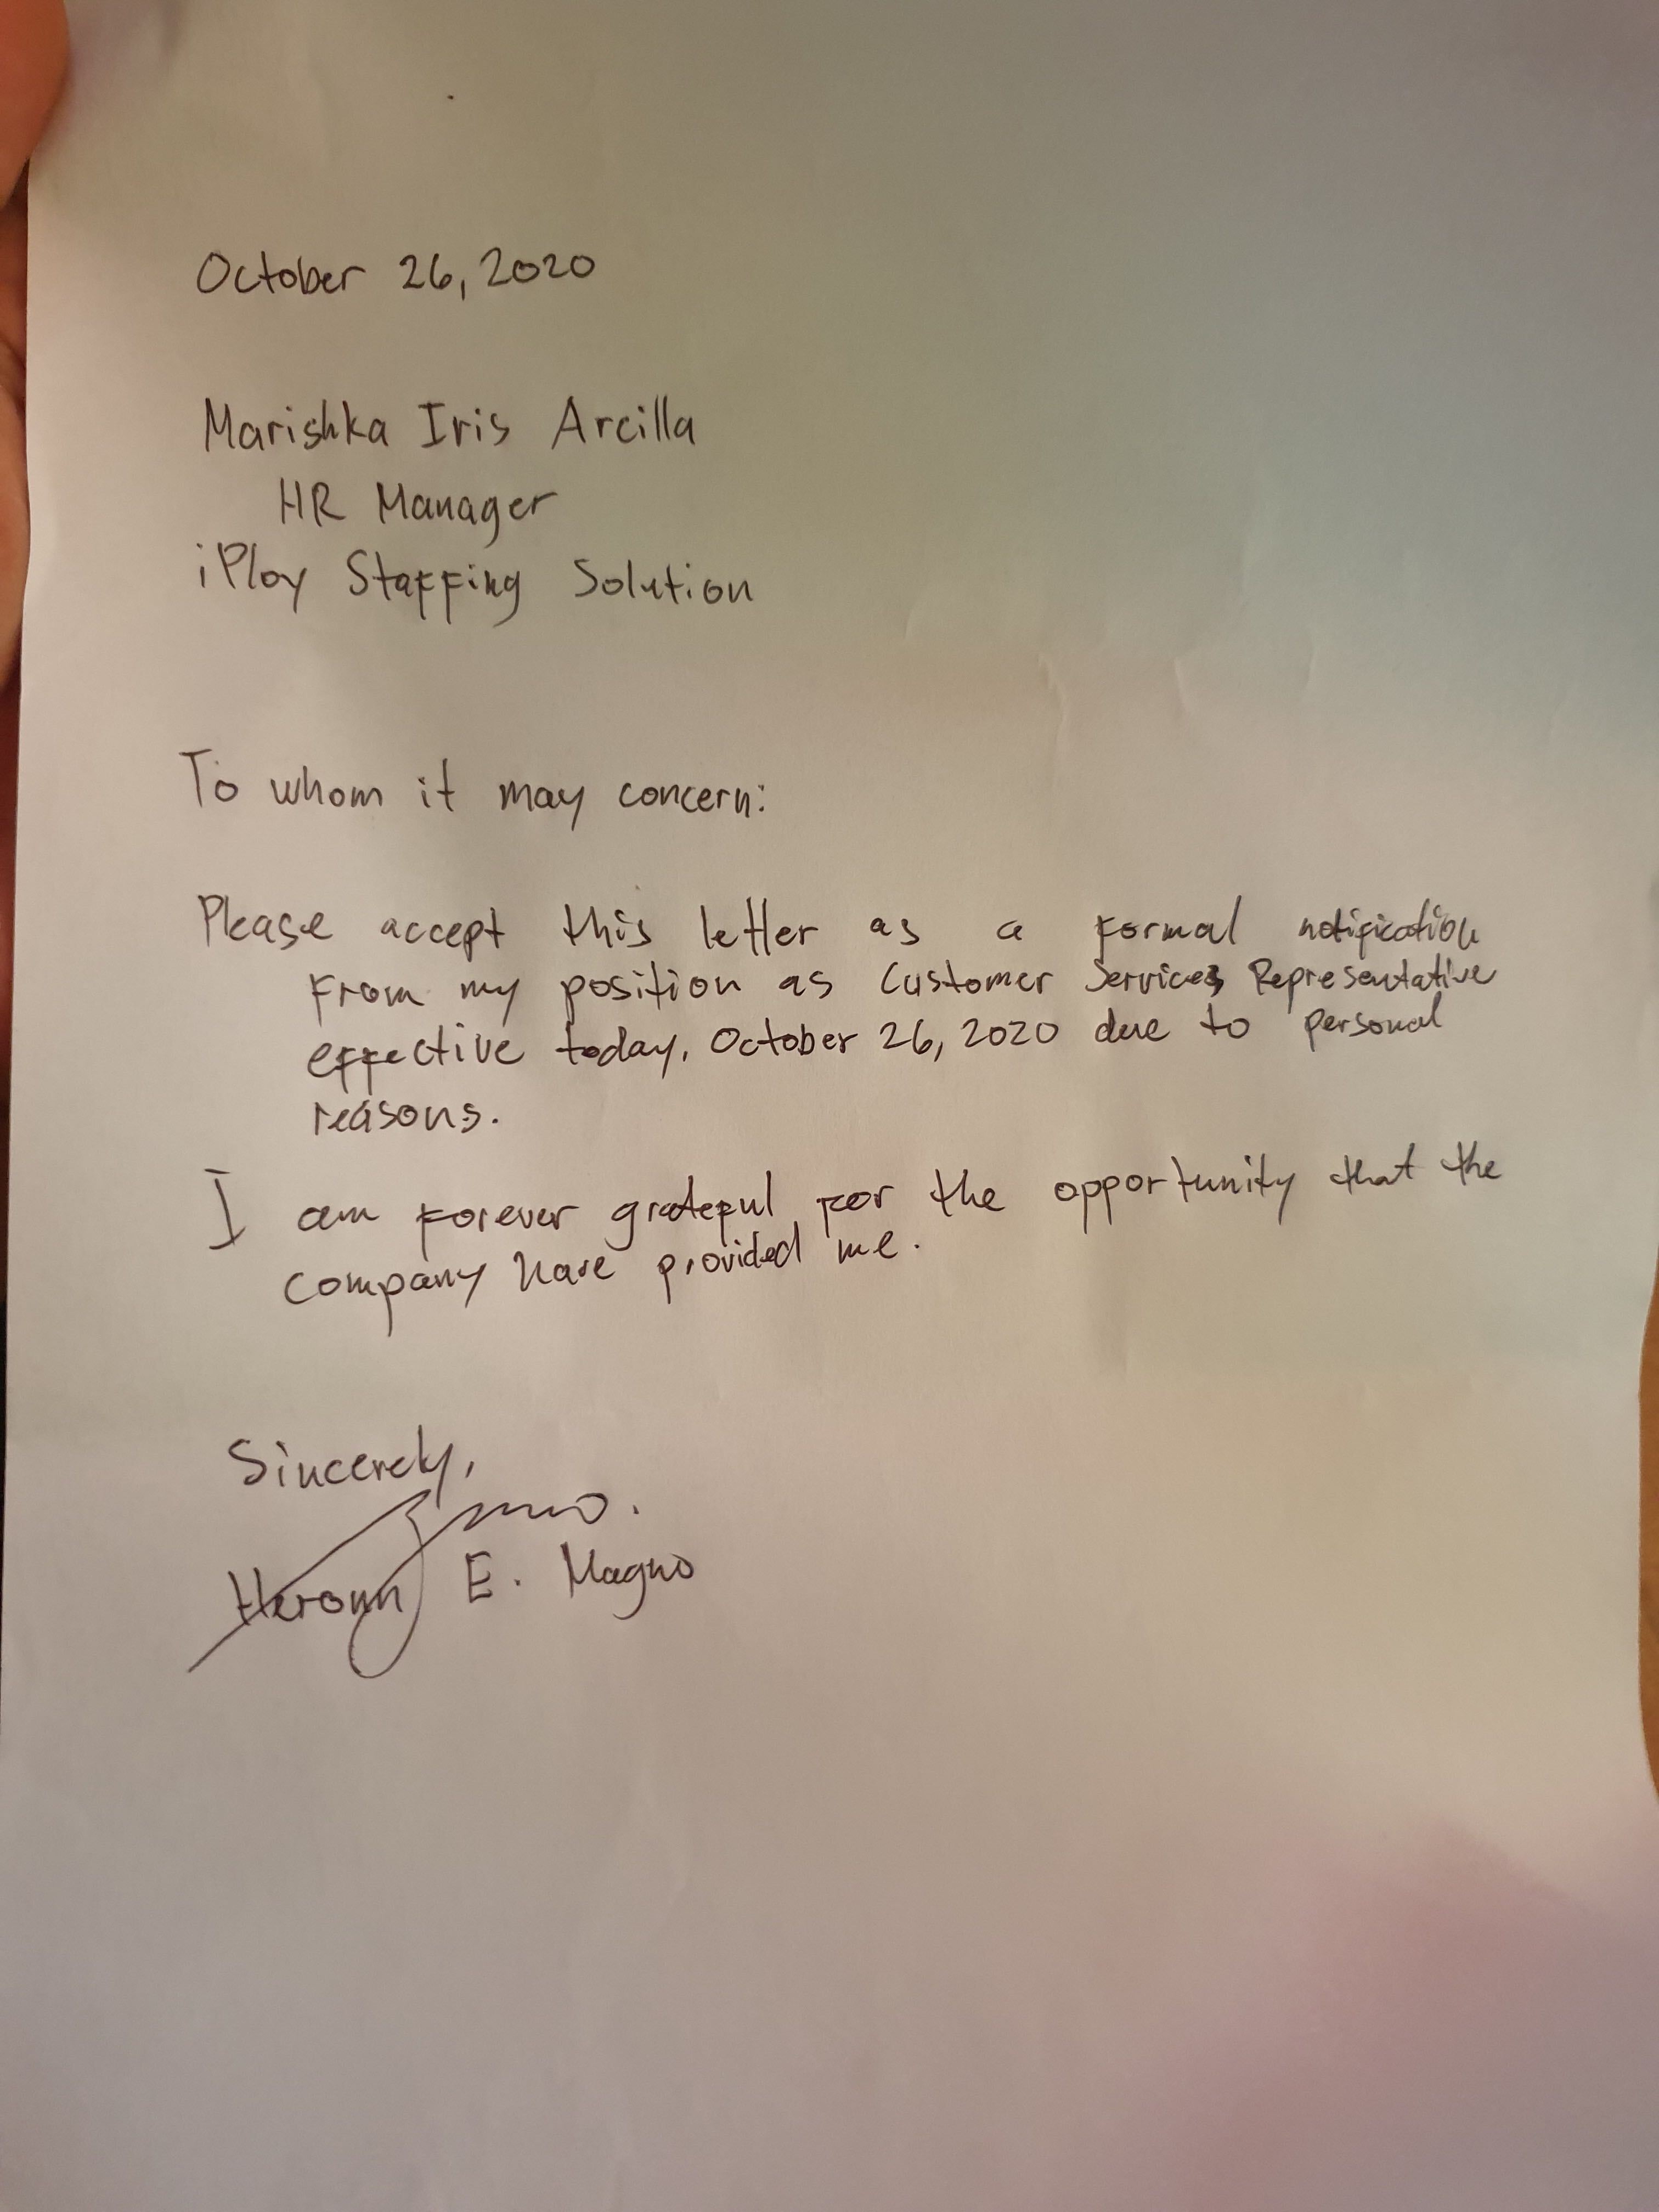 October 26, 2020
Marishka Iris Arcilla
HR Manager
iPloy Staffing Solution
To whom it may concern:
Please accept this letter as a formal notification
from my position as Customer Services Representative
effective today, October 26, 2020 due to personal
reasons.
I am forever grateful for the opportunity that the
company have provided me.
Sincerely,
E. Magno